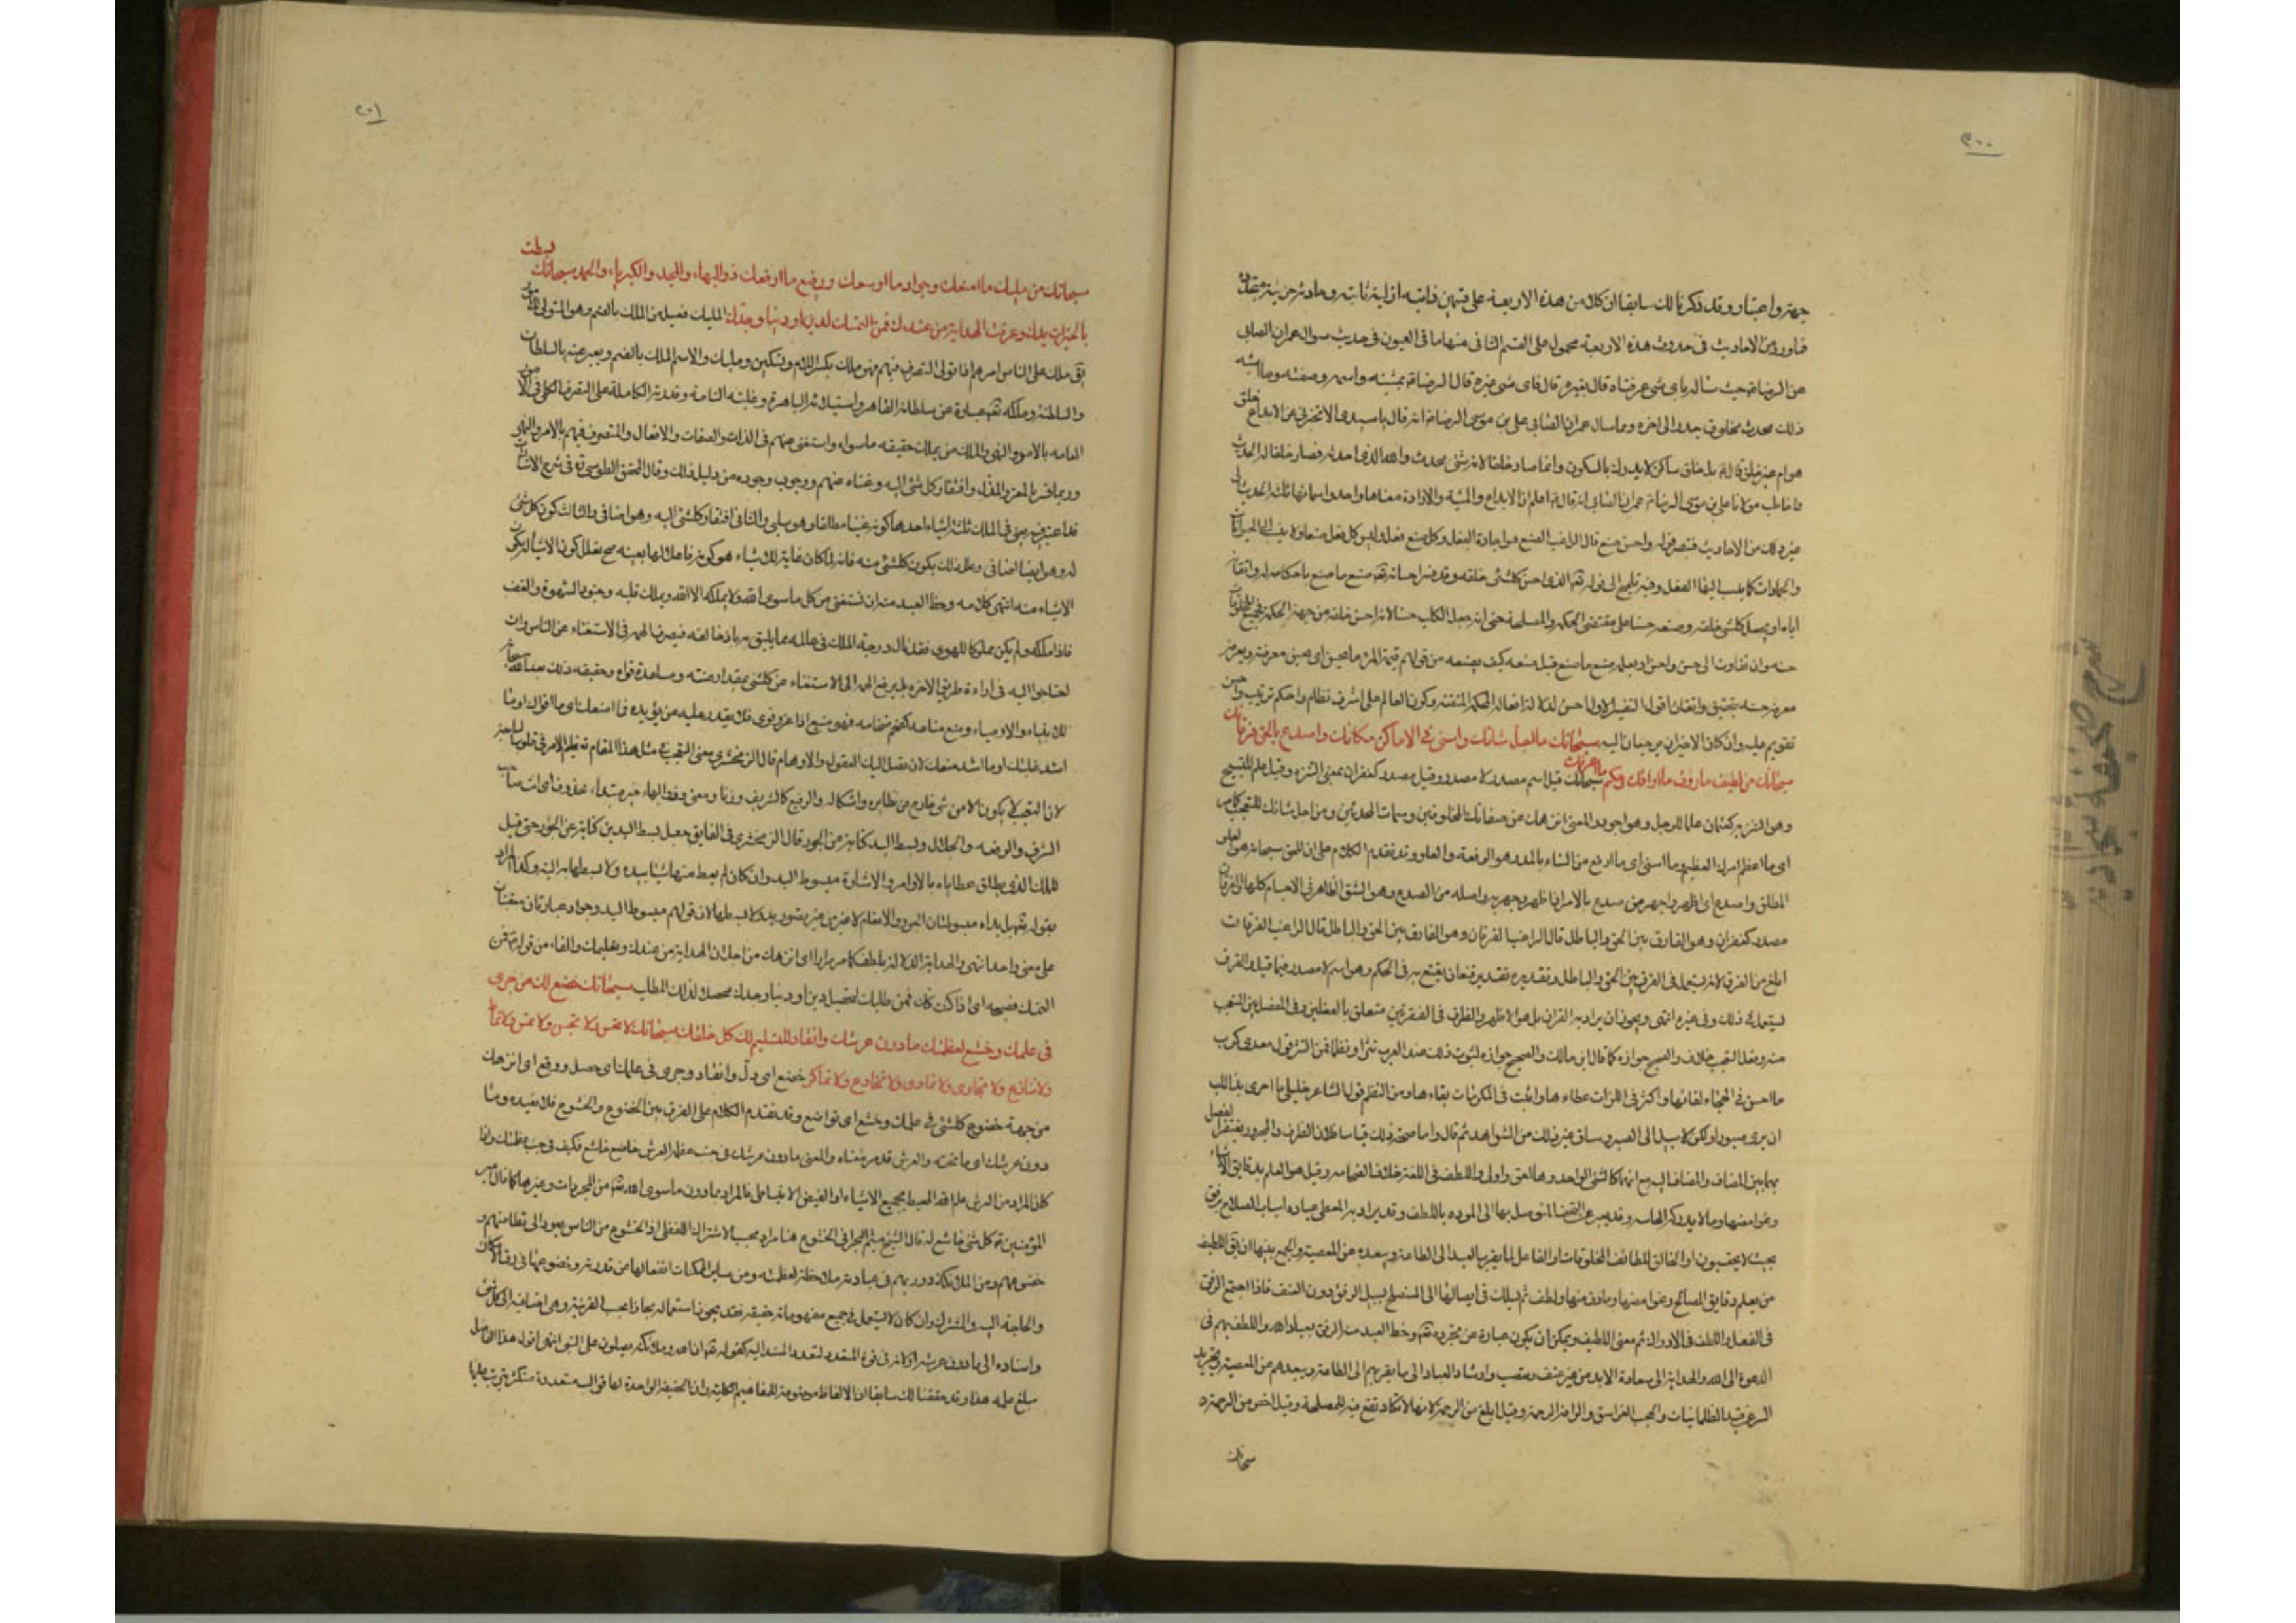 ٣٠٠
جهة واعتبار وقد ذكرنا لك سابقا ان كلا من هذه الاربعة على قسمين ذاتية ازلية ثابتة وحادثة جزئية
فما ورد من الاحاديث فى حدوث هذه الاربعة محمول على القسم الثانى منها ما فى العيون فى حديث سوال عمران الصابى
عن الرضا حيث سأله باى شىء عرفناه قال بغيره قال فاى شىء غيره قال الرضا بمشيته واسمه وصفته وما اشبه
ذلك محدث مخلوق مدبر الى اخره ومما سال عمران الصابى على بن موسى الرضا انه قال يا سيدى الا تخبرنى عن الابداع خلق
هو ام غير خلق قال بل خلق ساكن لا يدرك بالسكون وانما صار خلقا لانه شىء محدث والله الذى احدثه فصار خلقا له الحديث
ما خاطب مولانا على بن موسى الرضا عمران الصابى انه قال اعلم ان الابداع والمشية والارادة معناها واحد واسمائها ثلثة الحديث الى
غير ذلك من الاحاديث فتبصر قوله واحسن صنع قال الراغب الصنع هو اجادة الفعل وكل صنع فعل وليس كل فعل صنعا ولا ينسب الى الحيوانات
والجمادات كما ينسب اليها الفعل وفيه تلميح الى قوله تعالى الذى احسن كلشئ خلقه وقد فسر احسانه تعالى صنع ما صنع باحكامه له واتقانه
اياه او بجعل كلشئ خلقه وصنعه حسنا على مقتضى الحكمة والمصلحة حتى انه جعل الكلب حسنا لانه احسن خلقه من جهة الحكمة فجميع المخلوقات
حسنة وان تفاوت الى حسن واحسن او بعلمه بصنع ما صنع قبل صنعه كيف يصنعه من قولهم قيمة المرء ما يحسن اى يحسن معرفته ويعرفه
معرفة حسنة بتحقيق واتقان اقول التفسير الاول احسن لدلالته افعاله المحكمة المتقنة وكون العالم على اشرف نظام واحكم ترتيب واحسن
تقويم عليه وان كان الاخيران مرجعان اليه سبحانك ما اجل شانك واسنى فى الاماكن مكانك واصدع بالحق فرقانك
سبحانك من لطيف ما الطفك ورؤف ما ارافك وحكيم ما اعرفك سبحانك قيل اسم مصدر لا مصدر وقيل مصدر كغفران بمعنى التنزه وقيل علم للتسبيح
وهو التنزيه كعثمان علما للرجل وهو اجود والمعنى انزهك عن صفات المخلوقين وسمات المحدثين وما اجل شانك للتعجب كما مر
اى ما اعظم امرك العظيم وما اسنى اى ما ارفع من السناء بالمد وهو الرفعة والعلو وقد تقدم الكلام على ان الحق سبحانه هو العلو
المطلق واصدع اى اظهر واجهر من صدع بالامر اذا ظهر وجهر به واصله من الصدع وهو الشق الظاهر فى الاجسام كلها والفرقان
مصدر كغفران وهو الفارق بين الحق والباطل قال الراغب الفرقان وهو الفارق بين الحق والباطل قال الراغب الفرقان
ابلغ من الفرق لانه يستعمل فى الفرق بين الحق والباطل وتقديره تقدير قنعان يقنع به فى الحكم وهو اسم لا مصدر فيما قيل والفرق
يستعمل فى ذلك وفى غيره انتهى ويجوز ان يراد به القران بل هو الاظهر والظرف فى الفقرتين متعلق بالفعلين وفى الفصل بين المتعجب
منه وفعل التعجب خلاف والصحيح جوازه كما قال ابن مالك والصحيح جوازه لثبوت ذلك عند العرب نثرا ونظما فمن النثر قول معدى كرب
ما احسن فى الهيجاء لقائها واكثر فى اللزبات عطاءها واثبت فى المكرمات بقاءها ومن النظم قول الشاعر خليلى ما احرى بذى اللب
ان يرى صبورا ولكن لا سبيل الى الصبر وساق غير ذلك من الشواهد ثم قال واما صحة ذلك قياسا فلان الظرف والمجرور يغتفر الفصل
بهما بين المضاف والمضاف اليه مع انهما كالشئ الواحد وهما احق واولى واللطف فى اللغة خلاف الضخامة وقيل هو العلم بدقايق الاشياء
وغوامضها وما لا يدركه الحاسه وقد يعبر عن التحف المتوسل بها الى المودة باللطف وقد يراد به المعطى عباده اسباب الصلاح برفق
بحيث لا يحتسبون او الخالق للطائف المخلوقات او الفاعل لما يقرب العبد الى الطاعة ويبعده عن المعصية والجمع بينها ان يق اللطيف
من يعلم دقايق المصالح وغوامضها وما دق منها ولطف ثم يسلك فى ايصالها الى المستصلح سبيل الرفق دون العنف فاذا اجتمع الرفق
فى الفعل واللطف فى الادراك تم معنى اللطيف ويمكن ان يكون عبارة عن تجرده تعالى وحظ العبد منه الرفق بعباد الله واللطف بهم فى
الدعوة الى الله والهداية الى سعادة الابد من غير عنف وتعصب وارشاد العباد الى ما يقربهم الى الطاعة ويبعدهم عن المعصية وتجريد
السر عن قيد الظلمانيات والحجب الغواسق والرافة الرحمة وقيل ابلغ من الرحمة لانها لا تكاد تقع فيه للمصلحة وقيل اخص من الرحمة
سبحانك
٢٠١
سبحانك من مليك ما امنعك وجواد ما اوسعك ورفيع ما ارفعك ذو البهاء والمجد والكبرياء والحمد سبحانك بسطت
بالخيرات يدك وعرفت الهداية من عندك فمن التمسك لدين او دنيا وجدك المليك فعيل من الملك بالضم وهو المتولى
يق ملك على الناس امرهم اذا تولى التصرف فيهم فهو ملك بكسر اللام وتسكين ومليك والاسم الملك بالضم ويعبر عنه بالسلطان
والسلطنة وملكه تعالى عبارة عن سلطانه القاهر واستيلائه الباهرة وغلبته التامة وقدرته الكاملة على التصرف الكلى فى الامور
العامة بالامر والنهى والملك من يملك حقيقه ما سواه واستغنى عنهم فى الذات والصفات والافعال والمتصرف فيهم بالامر والنهى
وربما فسر بالمعز والمذل وافتقار كل شئ اليه وغناه عنهم ووجوب وجوده من دليل ذلك وقال المحقق الطوسى فى شرح الاشارات
قد اعتبر فى معنى الملك ثلثة اشياء احدها كونه غنيا مطلقا وهو سلبى والثانى افتقار كلشئ اليه وهو اضافى والثالث كون كل شئ
له وهو ايضا اضافى وعلل ذلك بكون كلشئ منه فانه لما كان غاية للاشياء هو كونه فاعلا لها بعينه صح تعليل كون الاشياء له بكون
الاشياء منه انتهى كلامه وحظ العبد منه ان تستغنى عن كل ما سوى الله ولا يملكه الا الله ويملك قلبه وجنود الشهوة والغضب
فاذا ملكه ولم يكن مملوكا للهوى فقد نال درجة الملك فى عالمه مما يليق به باذن خالقه فيصرف الهمة فى الاستغناء عن الناس وان
احتاجوا اليه فى اراءة طريق الاخرة بل يرفع الهمة الى الاستغناء عن كلشئ بمقدار منته ومساعدة قواه وحقيقه ذلك بعد الله سبحانه
للانبياء والاوصياء ومنع مناعة كضخم ضخامة فهو منيع اذا عز وقوى فلا يقدر عليه من يؤيده فما امنعك اى ما اقوالك او ما
اشد غلبتك او ما اشد منعك لان تصل اليك العقول والاوهام قال الزمخشرى معنى التعجب فى مثل هذا المقام تعظيم الامر فى قلوب السامعين
لان التعجب لا يكون الا من شئ خارج عن نظايره واشكاله والرفيع كالشريف وزنا ومعنى وذو البهاء خبر مبتداء محذوف اى انت صاحب
الشرف والرفعة والجلال وبسط اليد كناية عن الجود قال الزمخشرى فى الفايق جعل بسط اليدين كناية عن الجود حتى قيل
للملك الذى يطلق عطاياه بالاوامر والاشارة مبسوط اليد وان كان لم يعط منها شيئا بيده ولا بسطها به البتة وكذا المراد
بقوله تعالى بل يداه مبسوطتان الجود والانعام لا غير من غير تصور يد ولا بسطها لان قولهم مبسوط اليد وجواد عبارتان معتقبتان
على معنى واحد انتهى والهداية الدلالة بلطف كما مر مرارا اى انزهك من اجل ان الهداية من عندك وبتعليمك والفاء من قوله فمن
التمسك فصيحة اى اذا كنت كك فمن طلبك لتحصيل دين او دنيا وجدك محصلا لذلك المطلب سبحانك خضع لك من جرى
فى علمك وخشع لعظمتك ما دون عرشك وانقاد للتسليم لك كل خلقك سبحانك لا تحس ولا تجس ولا تمس ولا تماط
ولا تنازع ولا تجارى ولا تمارى ولا تخادع ولا تماكر خضع اى ذل وانقاد وجرى فى علمك اى حصل ووقع اى انزهك
من جهة خضوع كلشئ فى علمك وخشع اى تواضع وقد تقدم الكلام على الفرق بين الخضوع والخشوع فلا نعيده وما
دون عرشك اى ما تحته والعرش قد مر معناه والمعنى ما دون عرشك فى جنب عظم العرش خاضع خاشع فكيف فى جنب عظمتك واذا
كان المراد من العرش علم الله المحيط بجميع الاشياء او الفيض الانبساطى فالمراد بما دون ما سوى الله تعالى من المجردات وغيرها كما قال امير
المؤمنين كل شئ خاشع له قال الشيخ ميثم البحرانى الخشوع هنا مراد بحسب الاشتراك اللفظى اذ الخشوع من الناس يعود الى تطامنهم و
خضوعهم ومن الملائكة دورنهم فى عبادته ملاحظة لعظمته ومن سائر الممكنات انفعالها عن قدرته وخضوعها فى رق الامكان
والحاجة اليه والمشترك وان كان لا يستعمل فى جميع مفهوماته حقيقه فقد يجوز استعماله مجازا بحسب القرينة وهى اضافته الى كل شئ
واسناده الى ما دون عرشه او لانه فى قوة المتعدد لتعدد المسند اليه كقوله تعالى ان الله وملائكته يصلون على النبى انتهى اقول هذا الفاضل
مبلغ علمه هذا وقد حققنا لك سابقا ان الالفاظ موضوعة للمفاهيم الكلية وان الحقيقة الواحدة لها قوالب متعددة متكثرة